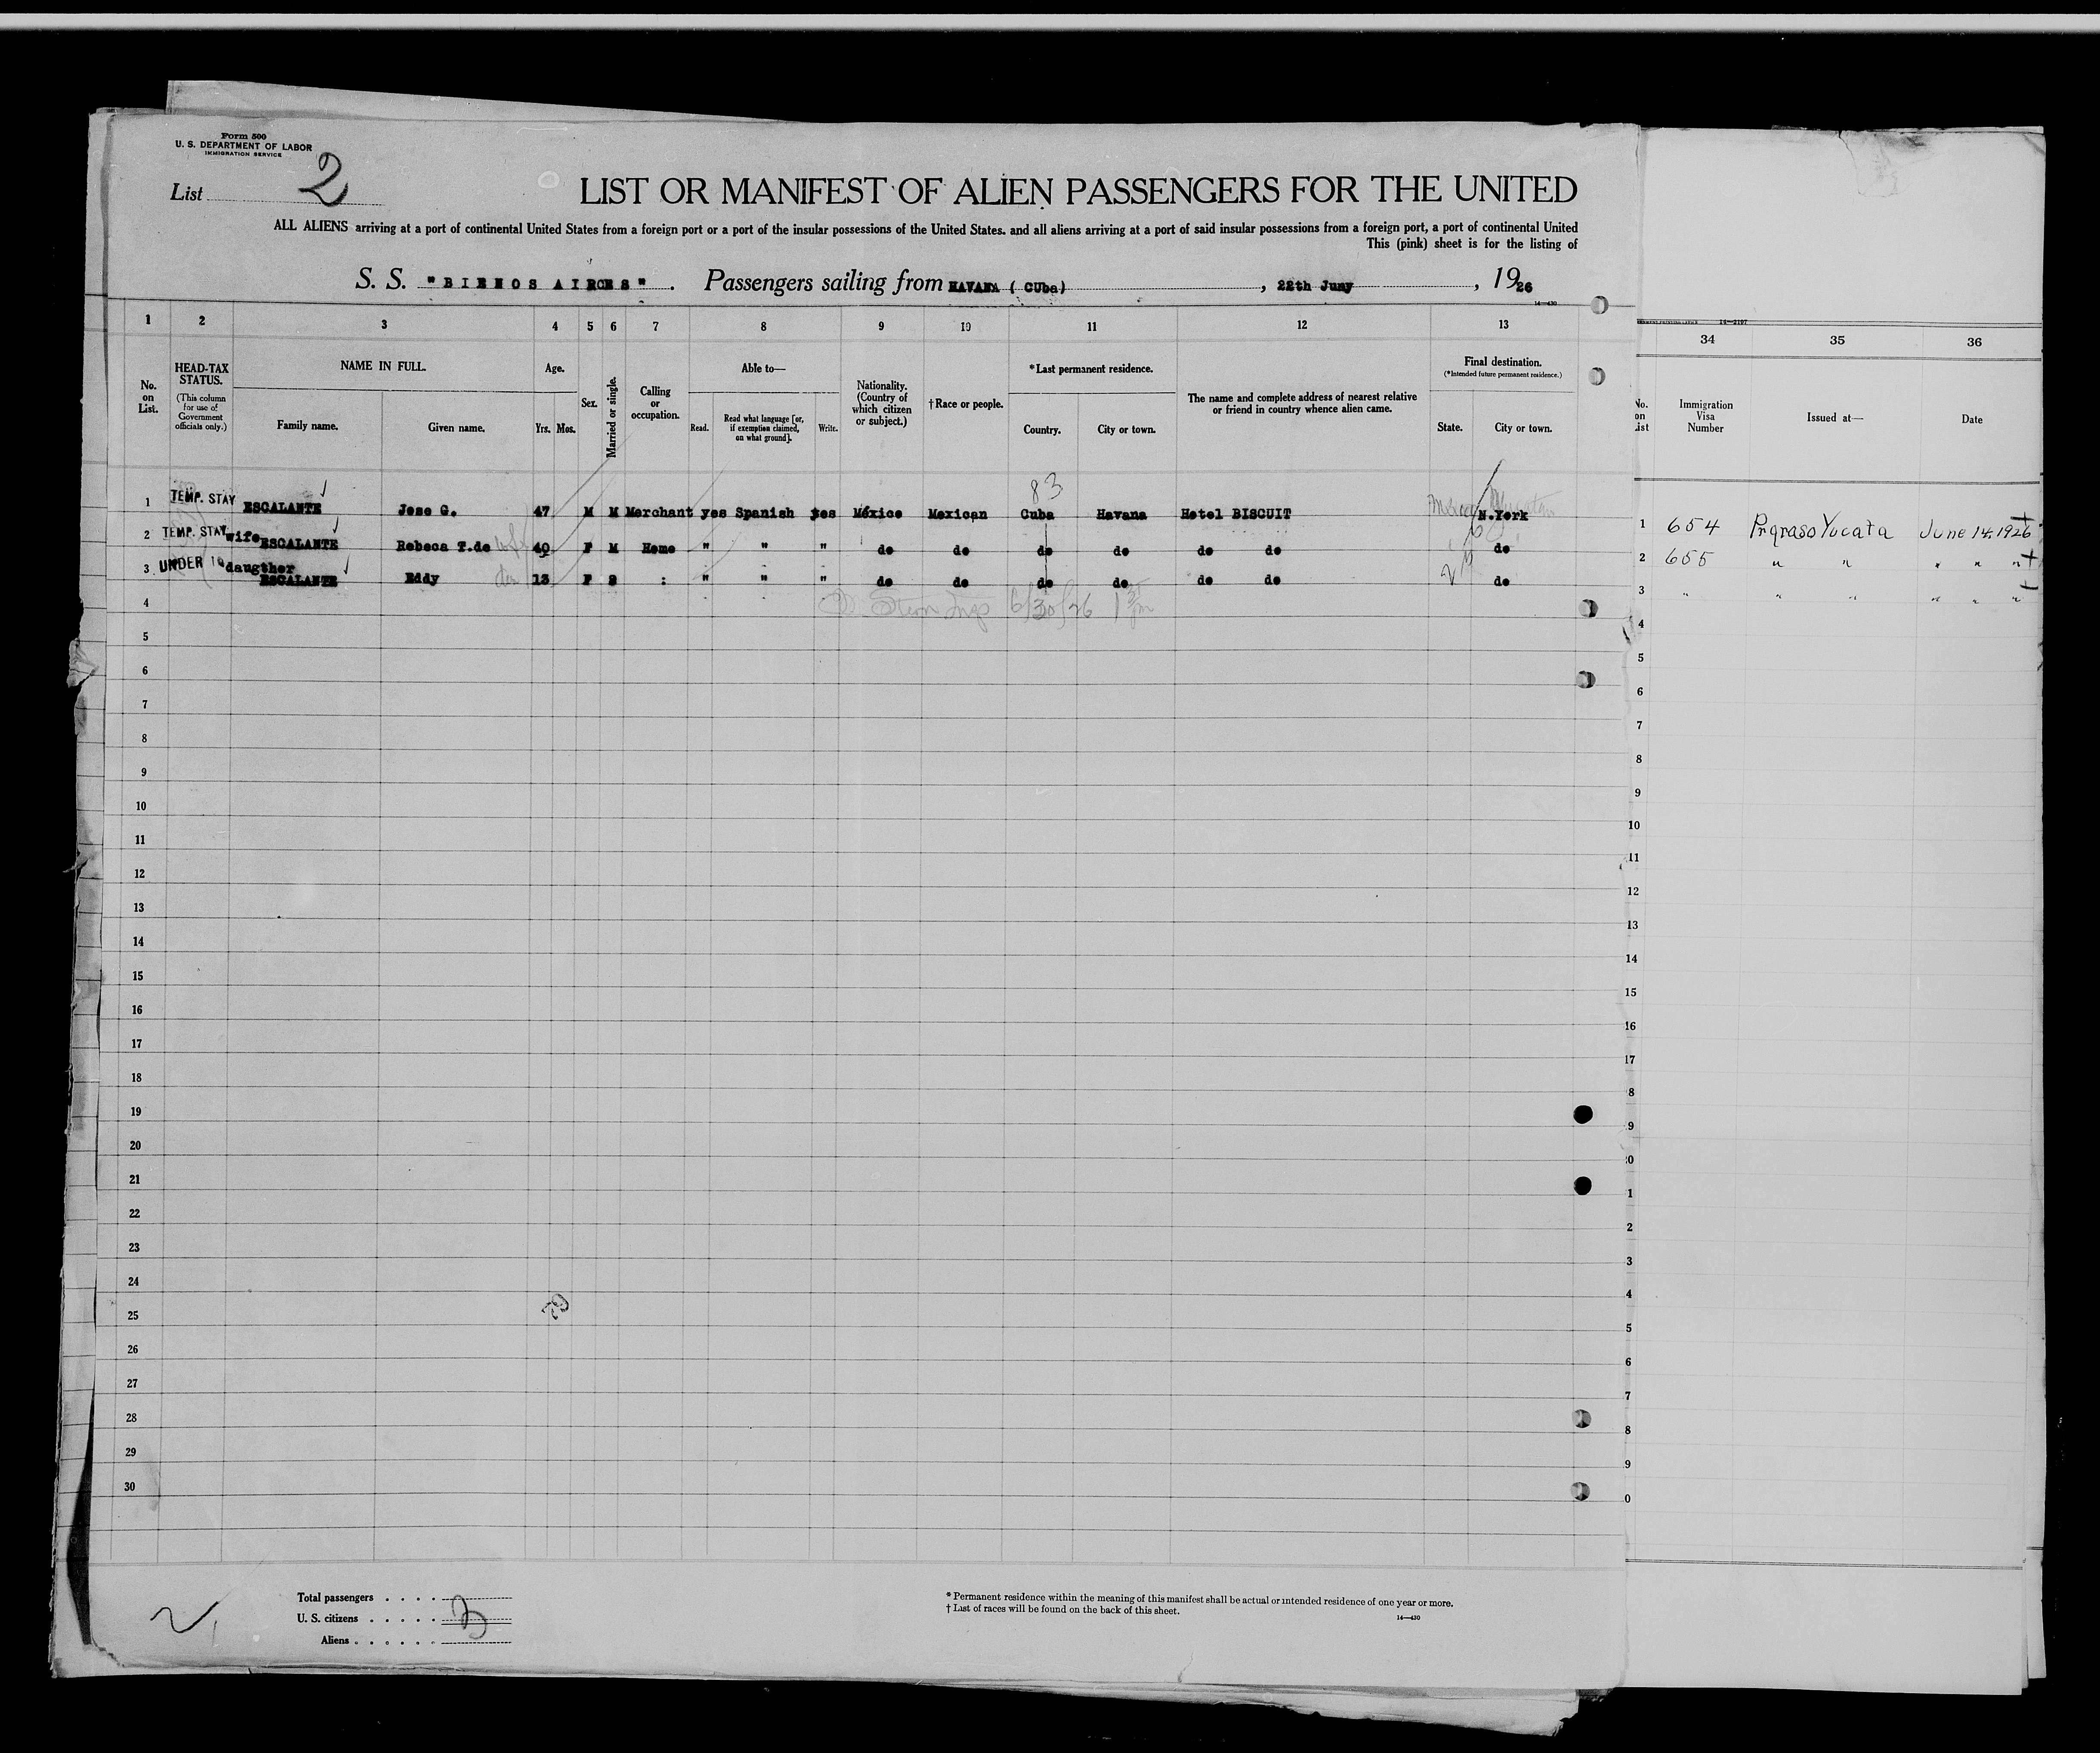 Form 500
U. S. DEPARTMENT OF LABOR
IMMIGRATION SERVICE
List 2
LIST OR MANIFEST OF ALIEN PASSENGERS FOR THE UNITED
ALL ALIENS arriving at a port of continental United States from a foreign port or a port of the insular possessions of the United States. and all aliens arriving at a port of said insular possessions from a foreign port, a port of continental United
This (pink) sheet is for the listing of
S. S. "BIENOS AIRES". Passengers sailing from HAVANA ( CUba) , 22th Juny , 1926
14—430
1 2 3 4 5 6 7 8 9 10 11 12 13
No. on List.
HEAD-TAX STATUS.
(This column for use of Government officials only.)
NAME IN FULL.
Family name. Given name.
Age.
Yrs. Mos.
Sex.
Married or single.
Calling or occupation.
Able to—
Read. Read what language [or, if exemption claimed, on what ground]. Write.
Nationality. (Country of which citizen or subject.)
†Race or people.
*Last permanent residence.
Country. City or town.
The name and complete address of nearest relative or friend in country whence alien came.
Final destination.
(*Intended future permanent residence.)
State. City or town.
34 35 36
No. on List
Immigration Visa Number
Issued at—
Date
83
1 TEMP. STAY ESCALANTE Jose G. 47 M M Merchant yes Spanish yes México Mexican Cuba Havana Hotel BISCUIT N.York
2 TEMP. STAY wife ESCALANTE Rebeca T.de 40 F M Home " " " do do do do do do do
3 UNDER 16 daugther ESCALANTE Eddy 13 F S : " " " do do do do do do do
6/30/26
1 654 Prqraso Yucata June 14, 1926
2 655 " " " " "
3 " " " " " "
4
5
6
7
8
9
10
11
12
13
14
15
16
17
18
19
20
21
22
23
24
25
26
27
28
29
30
4
5
6
7
8
9
10
11
12
13
14
15
16
17
8
9
0
1
2
3
4
5
6
7
8
9
0
Total passengers . . . .
U. S. citizens . . . . . 3
Aliens . . . . . .
* Permanent residence within the meaning of this manifest shall be actual or intended residence of one year or more.
† List of races will be found on the back of this sheet.
14—430